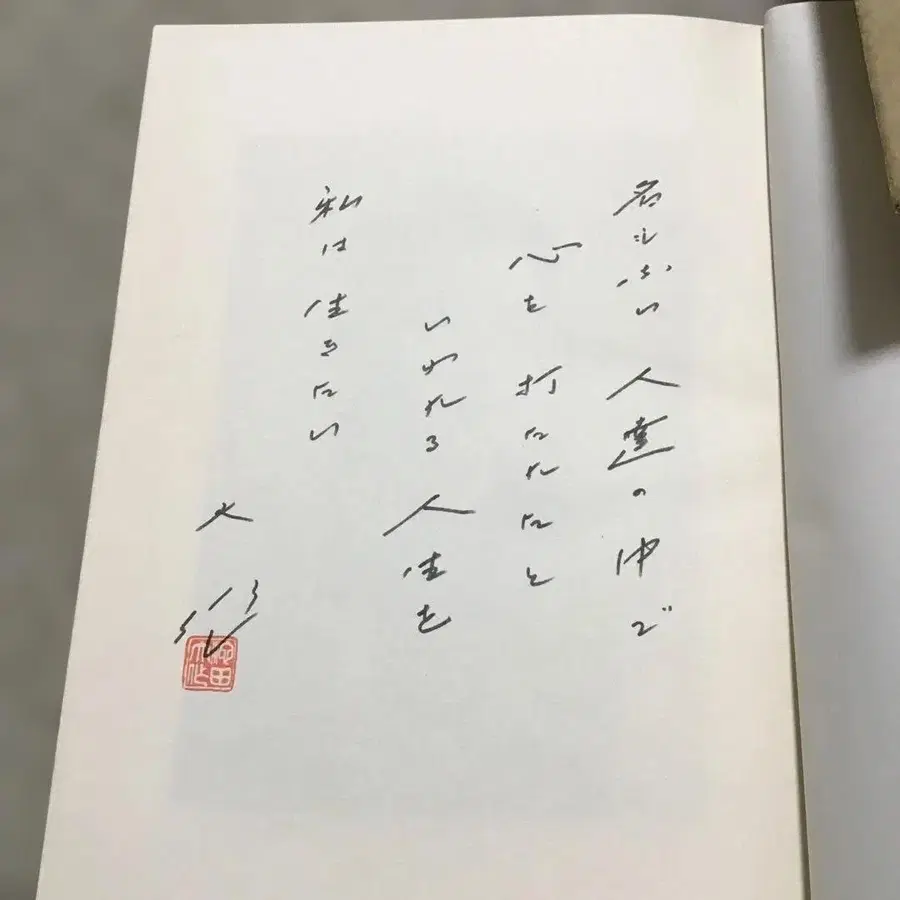 名もない人達の仲で
心を打たれたと
いわれる人生を
私は生きたい